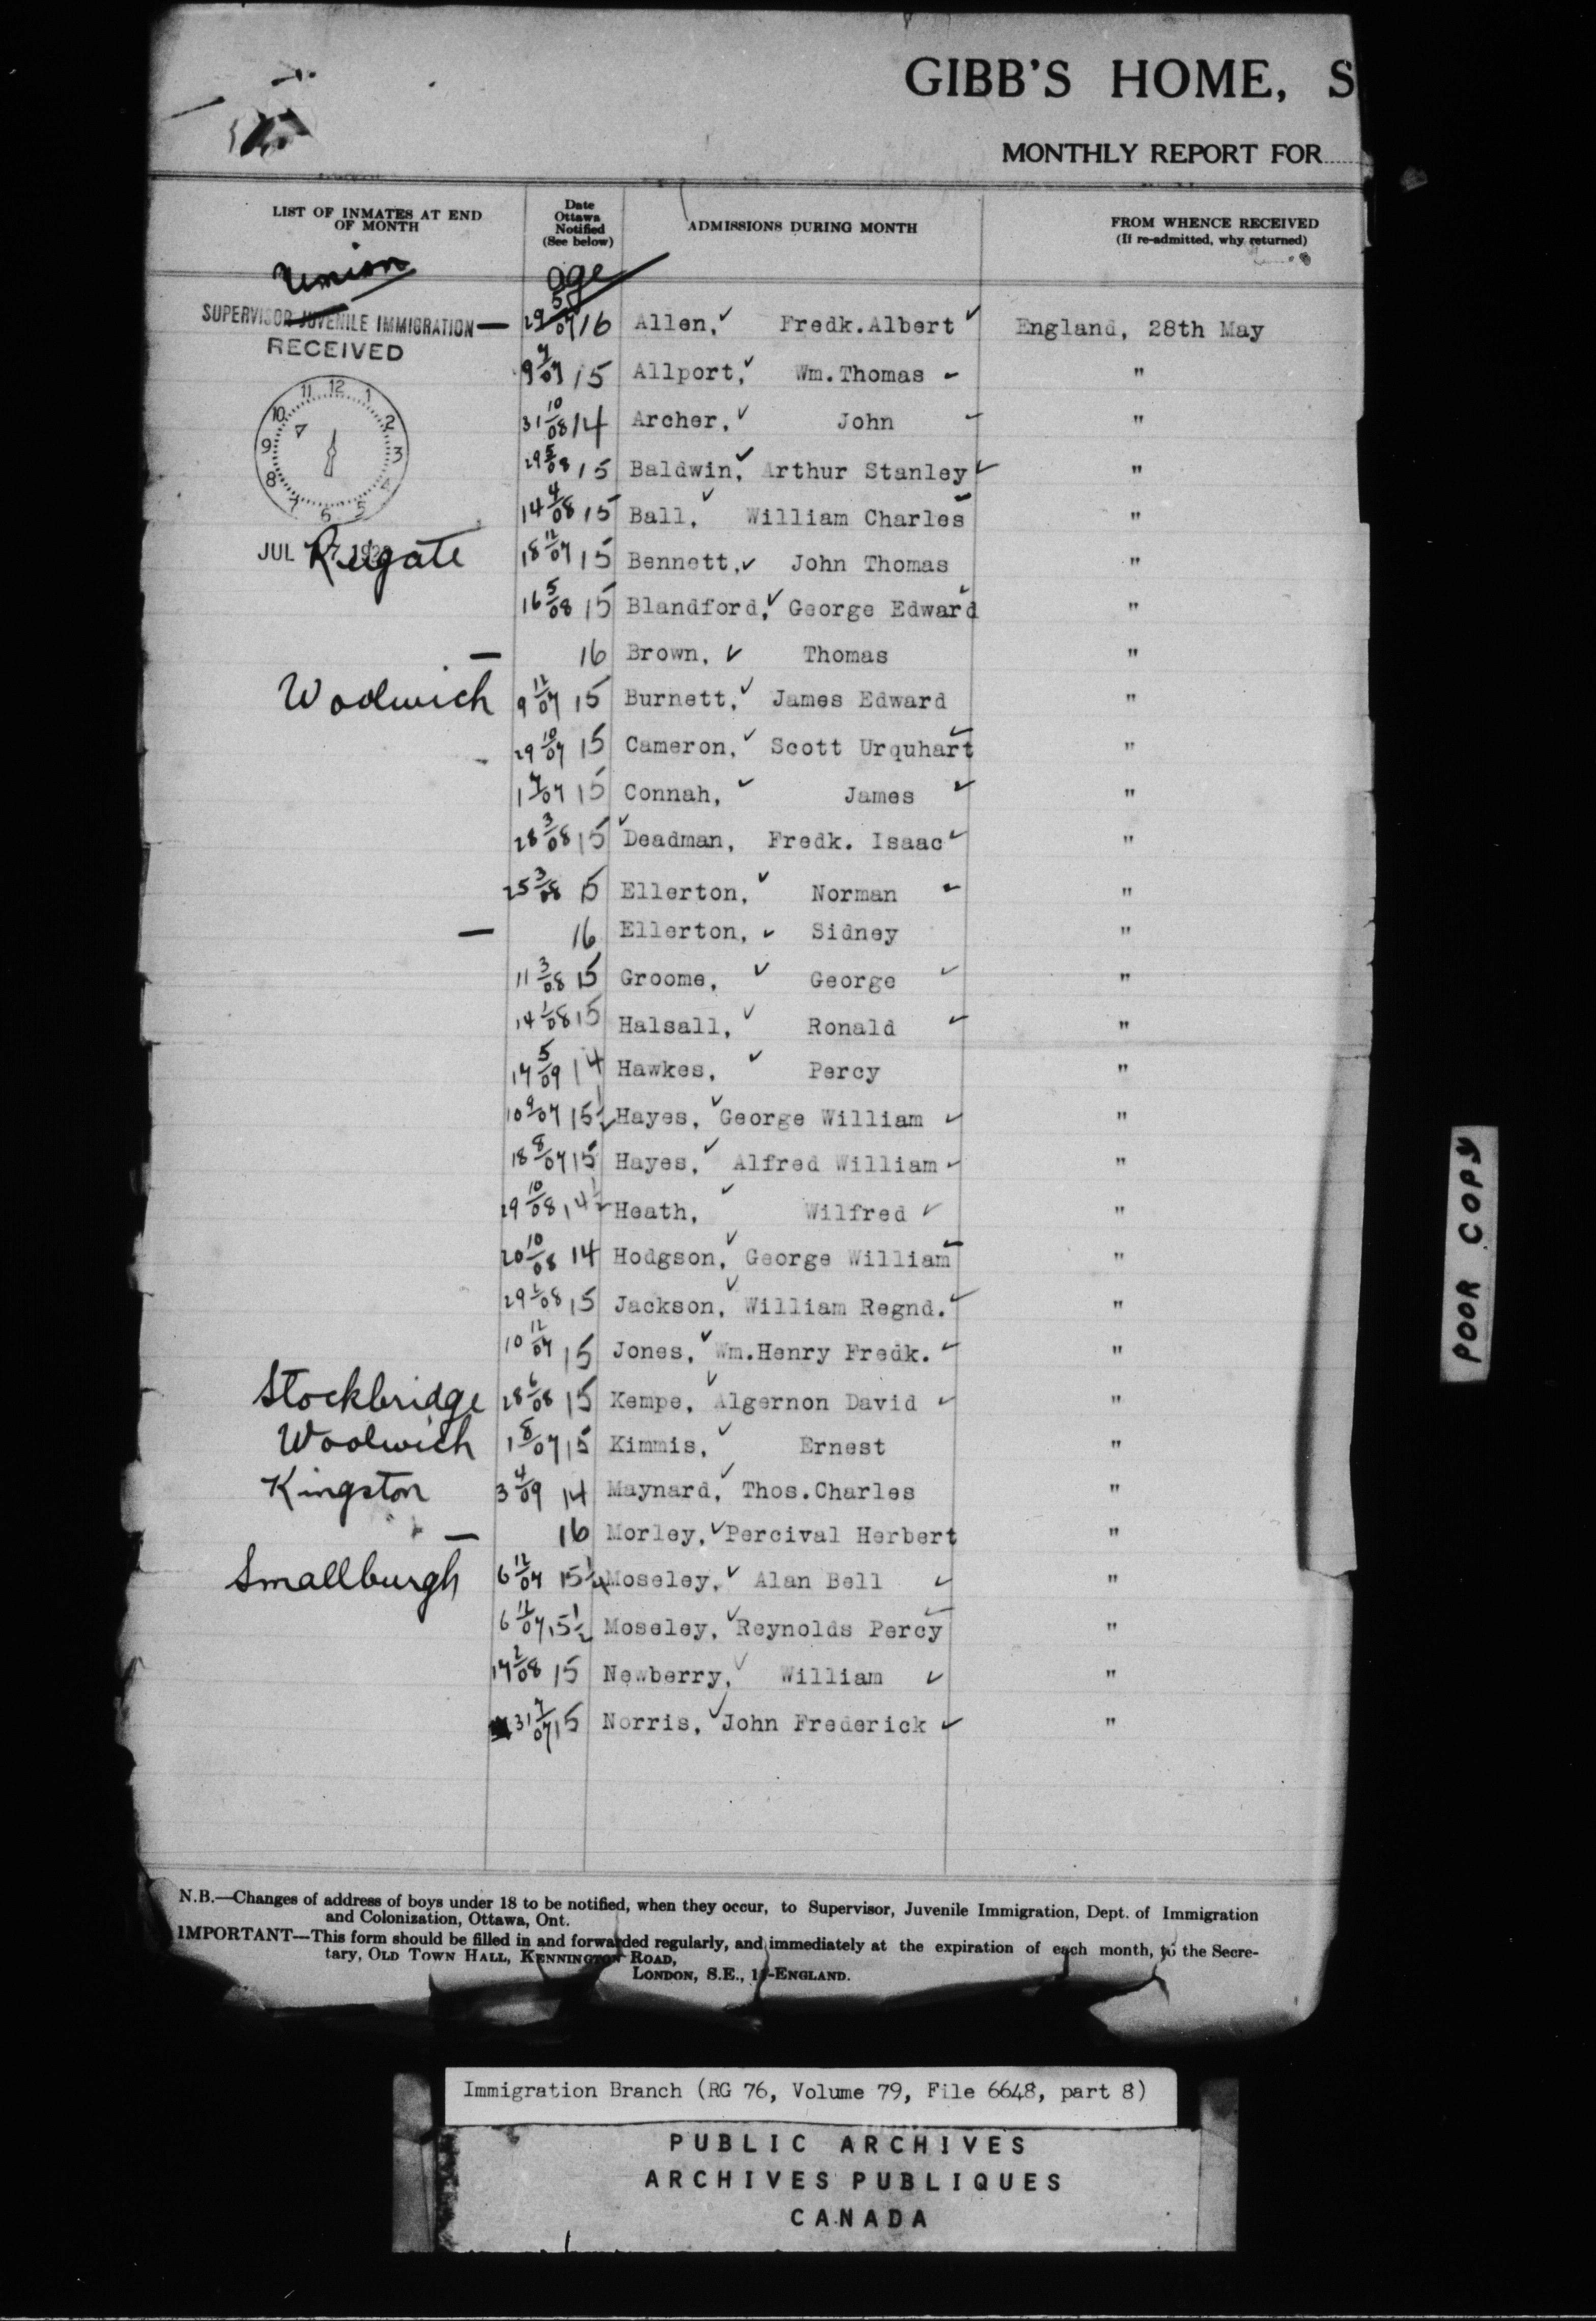 GIBB'S HOME, S
MONTHLY REPORT FOR
LIST OF INMATES AT END OF MONTH
Date Ottawa Notified (See below)
ADMISSIONS DURING MONTH
FROM WHENCE RECEIVED (If re-admitted, why returned)
Union
age
SUPERVISOR JUVENILE IMMIGRATION
RECEIVED
12 1 2 3 4 5 6 7 8 9 10 11
JUL
— 29 5/07 16 Allen, ✓ Fredk.Albert ✓ England, 28th May
9 7/07 15 Allport, ✓ Wm.Thomas ✓ "
31 10/08 14 Archer, ✓ John ✓ "
29 5/08 15 Baldwin, ✓ Arthur Stanley ✓ "
14 4/08 15 Ball, ✓ William Charles ✓ "
Reigate 18 12/07 15 Bennett, ✓ John Thomas "
16 5/08 15 Blandford, ✓ George Edward ✓ "
— 16 Brown, ✓ Thomas "
Woolwich 9 12/07 15 Burnett, ✓ James Edward "
29 10/07 15 Cameron, ✓ Scott Urquhart ✓ "
1 7/07 15 Connah, ✓ James ✓ "
28 3/08 15 ✓ Deadman, Fredk. Isaac ✓ "
25 3/08 15 Ellerton, ✓ Norman ✓ "
— 16 Ellerton, ✓ Sidney "
11 3/08 15 Groome, ✓ George ✓ "
14 1/08 15 Halsall, ✓ Ronald ✓ "
17 5/09 14 Hawkes, ✓ Percy "
10 9/07 15½ Hayes, ✓ George William ✓ "
18 8/07 15 Hayes, ✓ Alfred William ✓ "
29 10/08 14½ Heath, ✓ Wilfred ✓ "
20 10/08 14 Hodgson, ✓ George William ✓ "
29 2/08 15 Jackson, ✓ William Regnd. ✓ "
10 12/07 15 Jones, ✓ Wm.Henry Fredk. ✓ "
Stockbridge 28 6/08 15 Kempe, ✓ Algernon David ✓ "
Woolwich 1 8/07 15 Kimmis, ✓ Ernest "
Kingston 3 4/09 14 Maynard, ✓ Thos.Charles "
— 16 Morley, ✓ Percival Herbert "
Smallburgh 6 12/07 15¼ Moseley, ✓ Alan Bell ✓ "
6 12/07 15½ Moseley, ✓ Reynolds Percy ✓ "
17 2/08 15 Newberry, ✓ William ✓ "
31 7/07 15 Norris, ✓ John Frederick ✓ "
N.B.—Changes of address of boys under 18 to be notified, when they occur, to Supervisor, Juvenile Immigration, Dept. of Immigration
and Colonization, Ottawa, Ont.
IMPORTANT—This form should be filled in and forwarded regularly, and immediately at the expiration of each month, to the Secre-
tary, OLD TOWN HALL, KENNINGTON ROAD,
LONDON, S.E., 11-ENGLAND.
POOR COPY
Immigration Branch (RG 76, Volume 79, File 6648, part 8)
PUBLIC ARCHIVES
ARCHIVES PUBLIQUES
CANADA